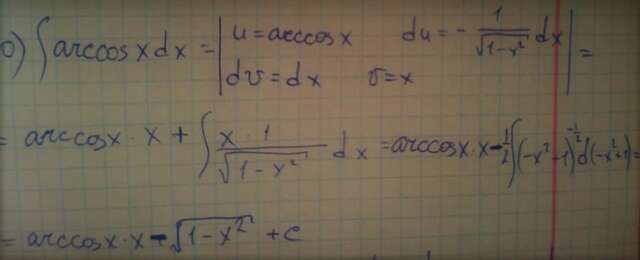 ) ∫ arccos x dx = | u = arccos x du = - 1/√(1-x²) dx |
| dv = dx v = x | =
= arccos x · x + ∫ (x · 1)/√(1-x²) dx = arccos x · x - 1/2 ∫ (-x² - 1)^(-1/2) d(-x²+1) =
= arccos x · x - √(1-x²) + c